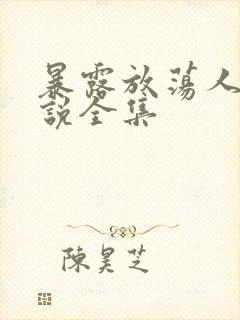 暴露放蕩人
說全集
陳昊芝